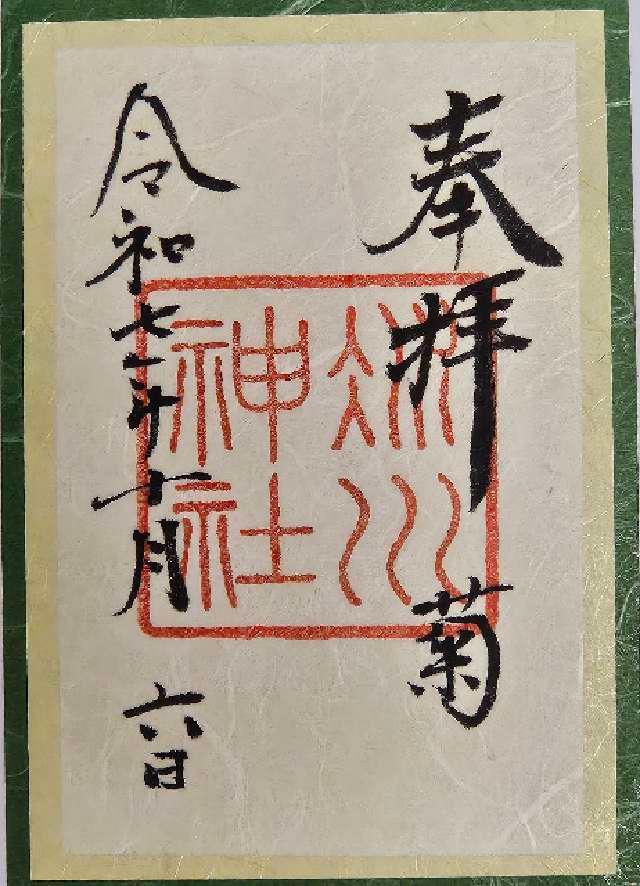 奉拝 菊
冰川
神社
令和七年十月 六日